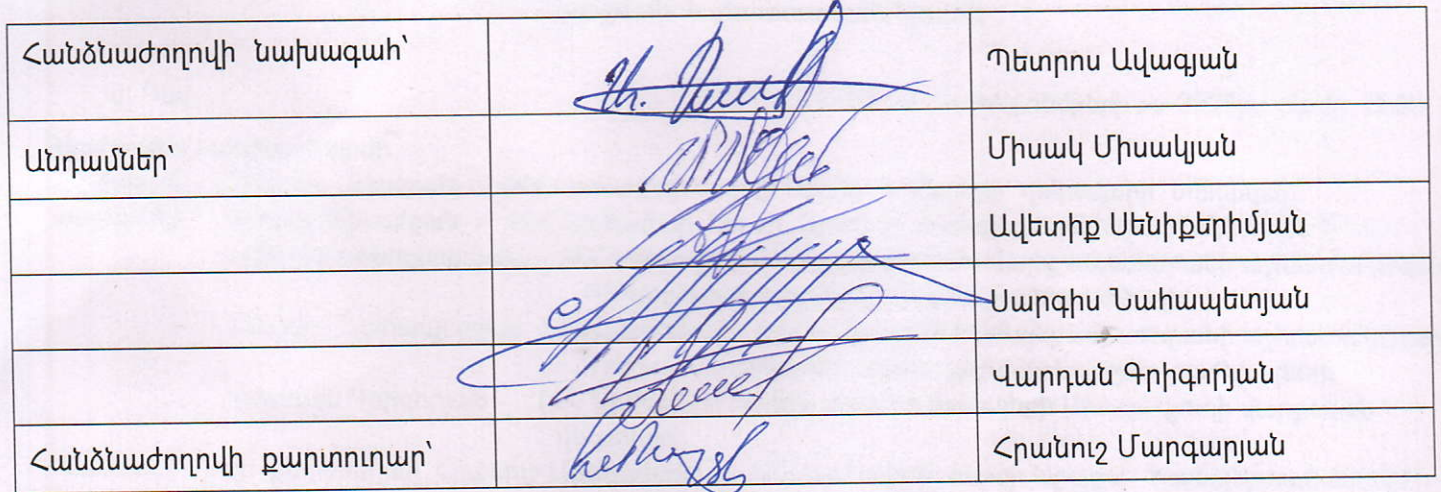 Հանձնաժողովի նախագահ՝ Պետրոս Ավագյան
Անդամներ՝ Միսակ Միսակյան
Ավետիք Սենիքերիմյան
Սարգիս Նահապետյան
Վարդան Գրիգորյան
Հանձնաժողովի քարտուղար՝ Հրանուշ Մարգարյան